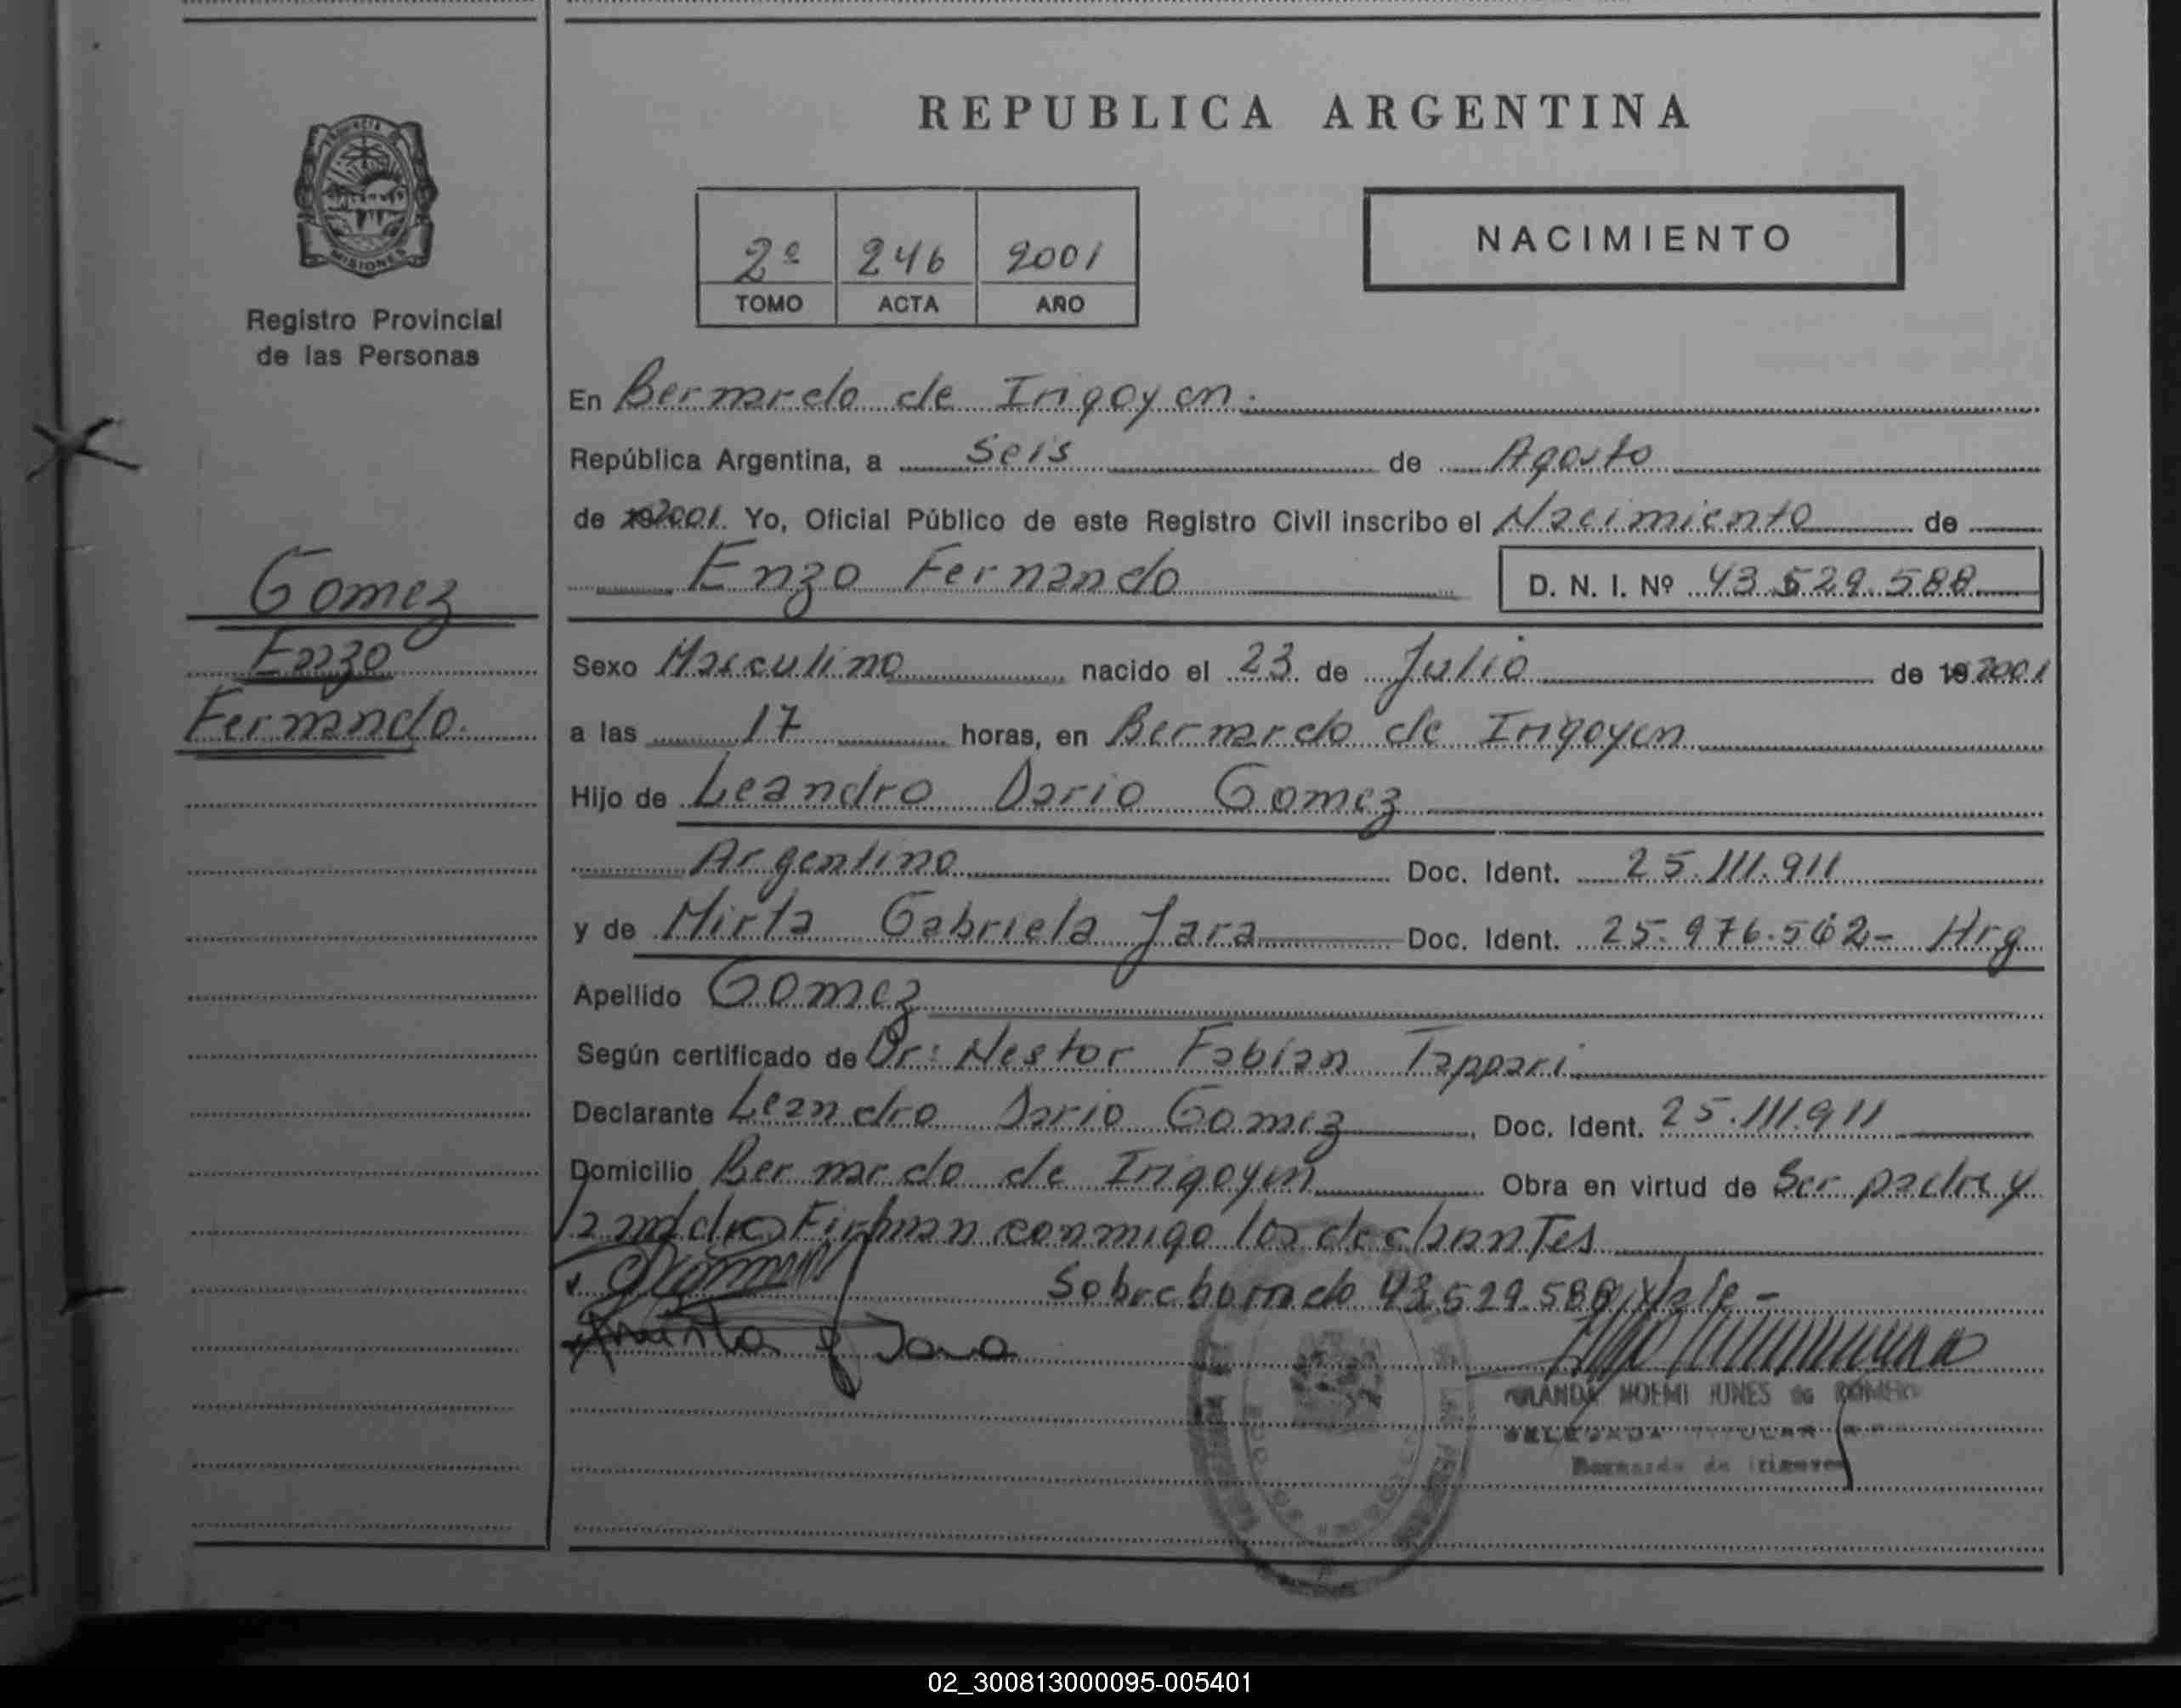 REPUBLICA ARGENTINA
PROVINCIA
MISIONES
Registro Provincial
de las Personas
2º 246 2001
TOMO ACTA AÑO
NACIMIENTO
En Bernardo de Irigoyen.
República Argentina, a Seis de Agosto
de 2001. Yo, Oficial Público de este Registro Civil inscribo el Nacimiento de
Enzo Fernando D. N. I. Nº 43.529.588
Gomez
Enzo
Fernando.
Sexo Masculino nacido el 23 de Julio de 19 2001
a las 17 horas, en Bernardo de Irigoyen
Hijo de Leandro Dario Gomez
Argentino Doc. Ident. 25.111.911
y de Mirta Gabriela Jara Doc. Ident. 25.976.562- Arg
Apellido Gomez
Según certificado de Dr: Nestor Fabian Tappari
Declarante Leandro Dario Gomez Doc. Ident. 25.111.911
Domicilio Bernardo de Irigoyen Obra en virtud de Ser padre y
la madre Firman conmigo los
Sobreborrado 43.529.588 Vale -
Jara
NOEMI de ROMERO
DELEGADA TITULAR
Bernardo de Irigoyen
02_300813000095-005401